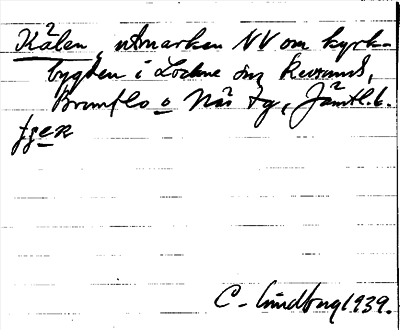 Kälen, utmarken NV om kyrk-
bygden i Lockne sn, Revsunds,
Brunflo o Näs tg, Jämtl.l.
C. Lindberg 1939.